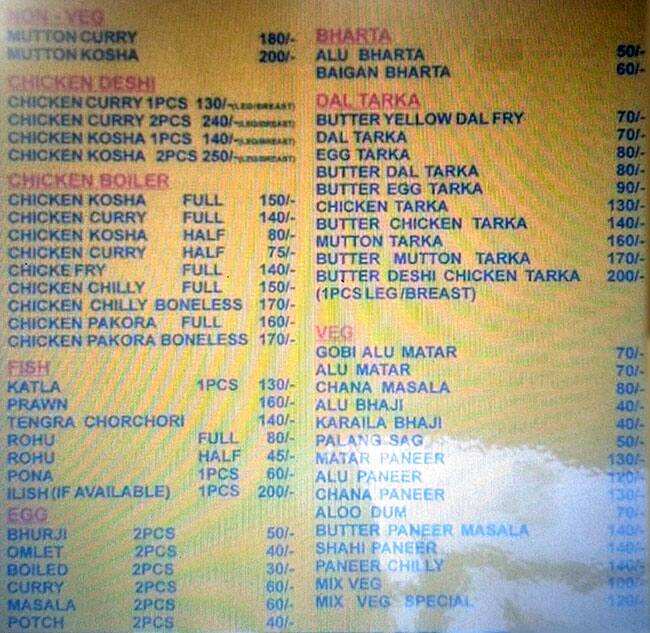 NON - VEG
MUTTON CURRY 180/-
MUTTON KOSHA 200/-
CHICKEN DESHI
CHICKEN CURRY 1PCS 130/-(LEG/BREAST)
CHICKEN CURRY 2PCS 240/-(LEG/BREAST)
CHICKEN KOSHA 1PCS 140/-(LEG/BREAST)
CHICKEN KOSHA 2PCS 250/-(LEG/BREAST)
CHICKEN BOILER
CHICKEN KOSHA FULL 150/-
CHICKEN CURRY FULL 140/-
CHICKEN KOSHA HALF 80/-
CHICKEN CURRY HALF 75/-
CHICKE FRY FULL 140/-
CHICKEN CHILLY FULL 150/-
CHICKEN CHILLY BONELESS 170/-
CHICKEN PAKORA FULL 160/-
CHICKEN PAKORA BONELESS 170/-
FISH
KATLA 1PCS 130/-
PRAWN 160/-
TENGRA CHORCHORI 140/-
ROHU FULL 80/-
ROHU HALF 45/-
PONA 1PCS 60/-
ILISH (IF AVAILABLE) 1PCS 200/-
EGG
BHURJI 2PCS 50/-
OMLET 2PCS 40/-
BOILED 2PCS 30/-
CURRY 2PCS 60/-
MASALA 2PCS 60/-
POTCH 2PCS 40/-
BHARTA
ALU BHARTA 50/-
BAIGAN BHARTA 60/-
DAL TARKA
BUTTER YELLOW DAL FRY 70/-
DAL TARKA 70/-
EGG TARKA 80/-
BUTTER DAL TARKA 80/-
BUTTER EGG TARKA 90/-
CHICKEN TARKA 130/-
BUTTER CHICKEN TARKA 140/-
MUTTON TARKA 160/-
BUTTER MUTTON TARKA 170/-
BUTTER DESHI CHICKEN TARKA 200/-
(1PCS LEG/BREAST)
VEG
GOBI ALU MATAR 70/-
ALU MATAR 70/-
CHANA MASALA 80/-
ALU BHAJI 40/-
KARAILA BHAJI 40/-
PALANG SAG 50/-
MATAR PANEER 130/-
ALU PANEER 120/-
CHANA PANEER 130/-
ALOO DUM 70/-
BUTTER PANEER MASALA 140/-
SHAHI PANEER 140/-
PANEER CHILLY 140/-
MIX VEG 100/-
MIX VEG SPECIAL 120/-